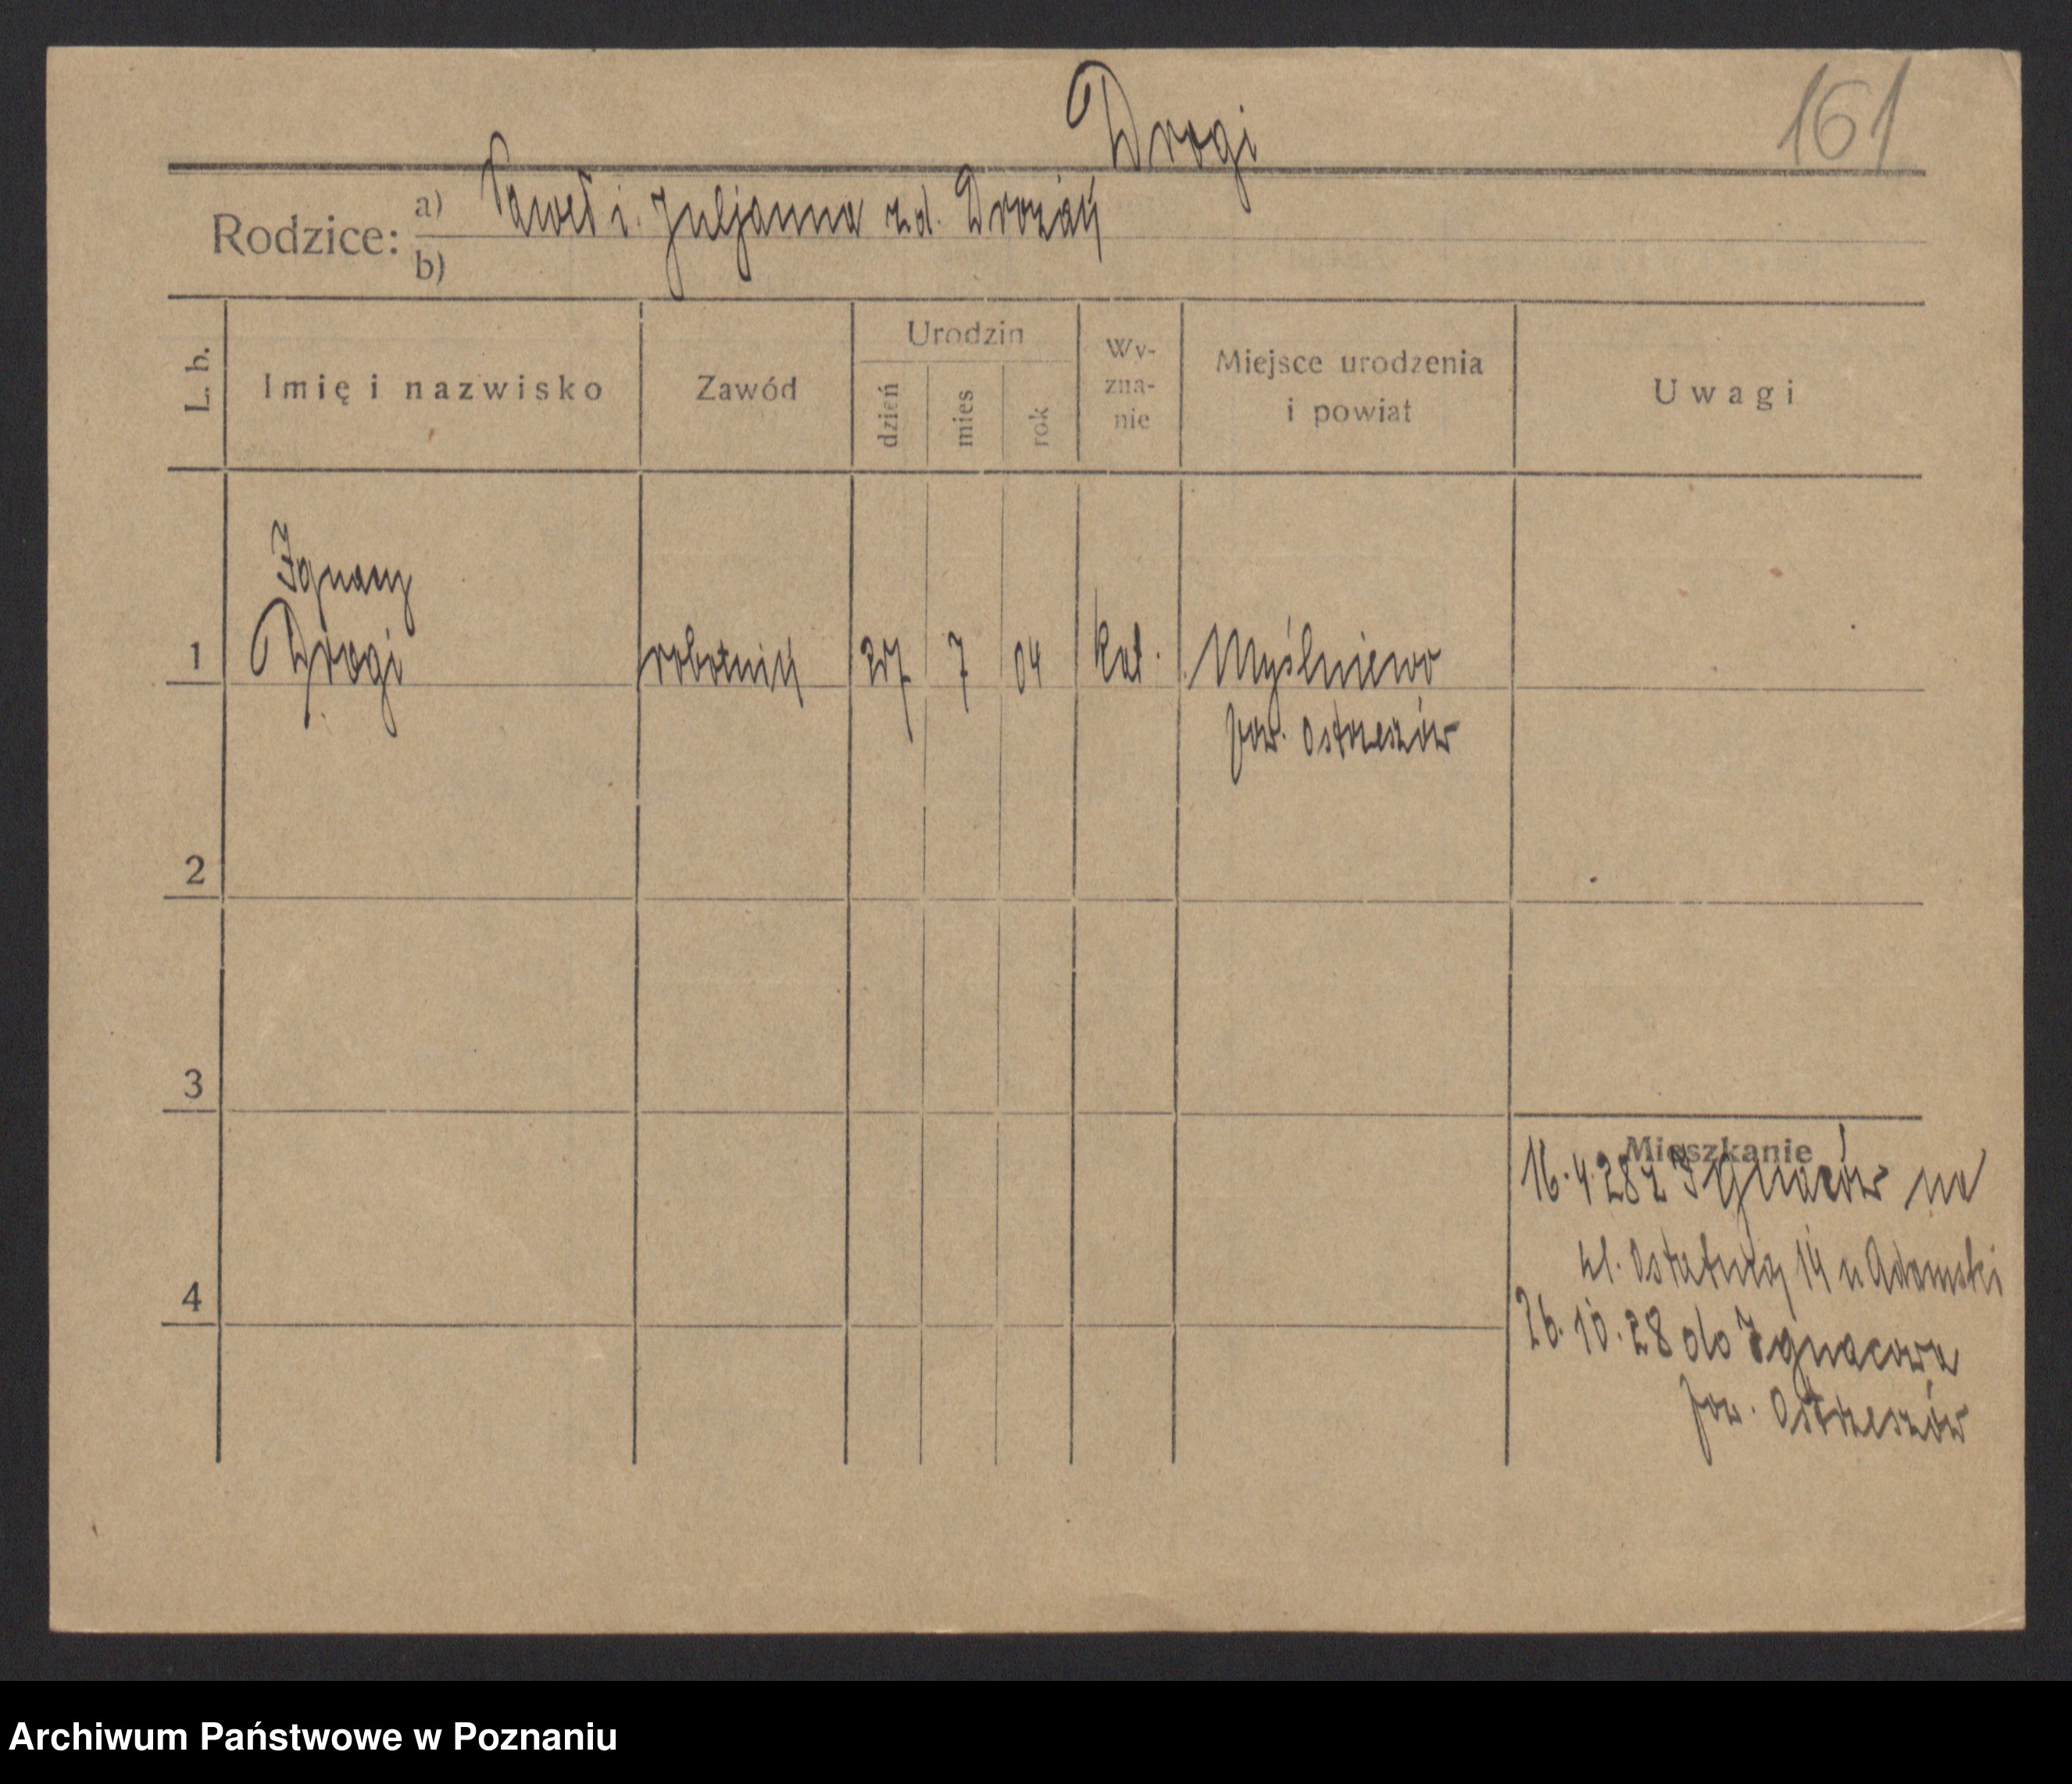 Drogi
161
Rodzice:
a) Paweł i Juljanna zd. Drożak
b)
L. b.
Imię i nazwisko
Zawód
Urodzin
dzień
mies
rok
Wy-
zna-
nie
Miejsce urodzenia
i powiat
Uwagi
Ignacy
1 Drogi robotnik 27 7 04 kat. Myślniewo
pow. Ostrzeszów
2
3
4
Mieszkanie
16.4.28 z Ignaców na
ul. Ostatnią 14 u Adamski
26.10.28 do Ignacowa
pow. Ostrzeszów
Archiwum Państwowe w Poznaniu